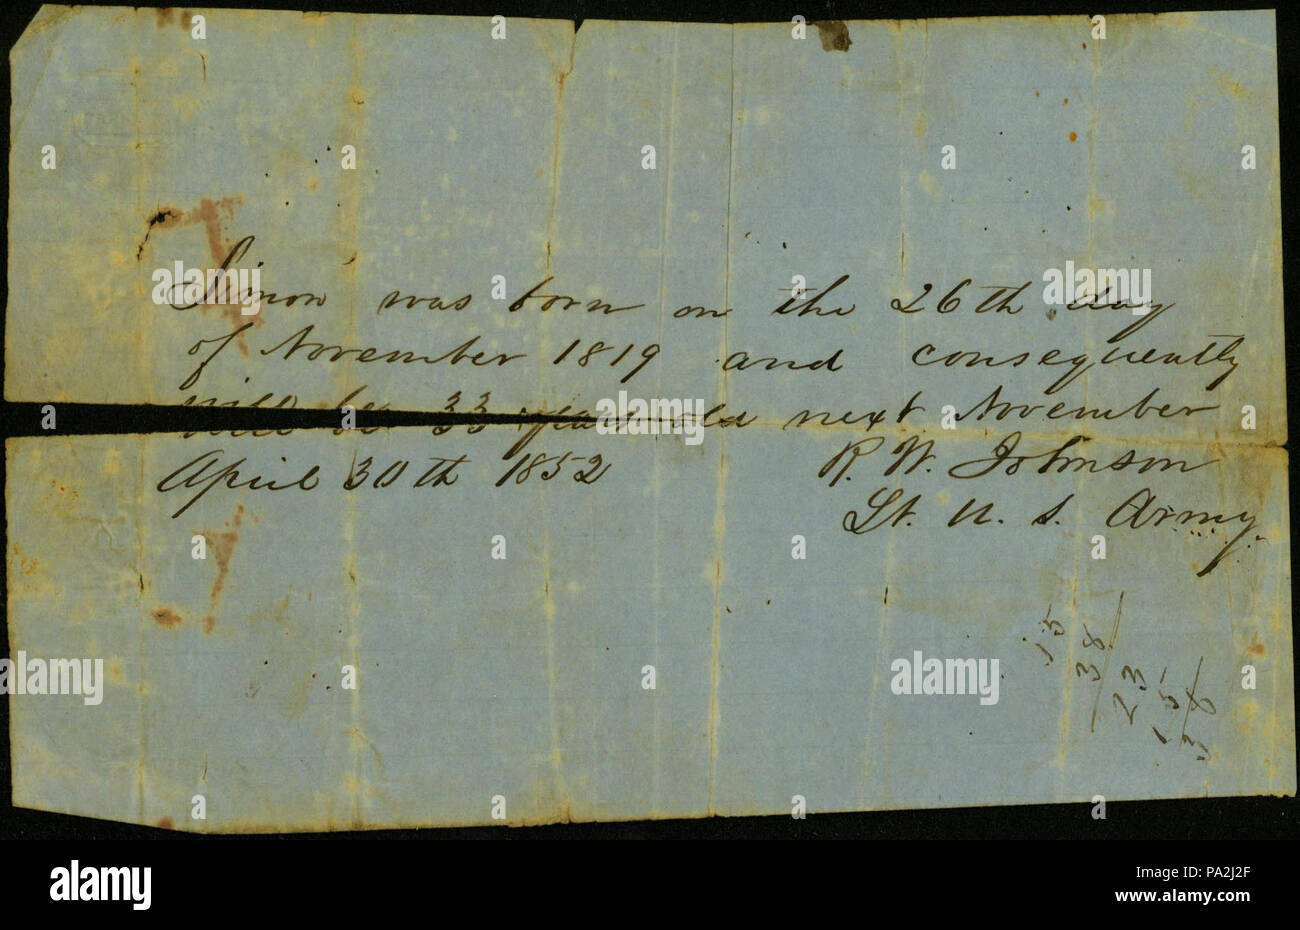 Simon was born on the 26th day
of November 1819 and consequently
will be 33 years old next November
April 30th 1852 R. W. Johnson
Lt. U. S. Army.
15
38
23
15
38
alamy
Image ID: PA2J2F
www.alamy.com